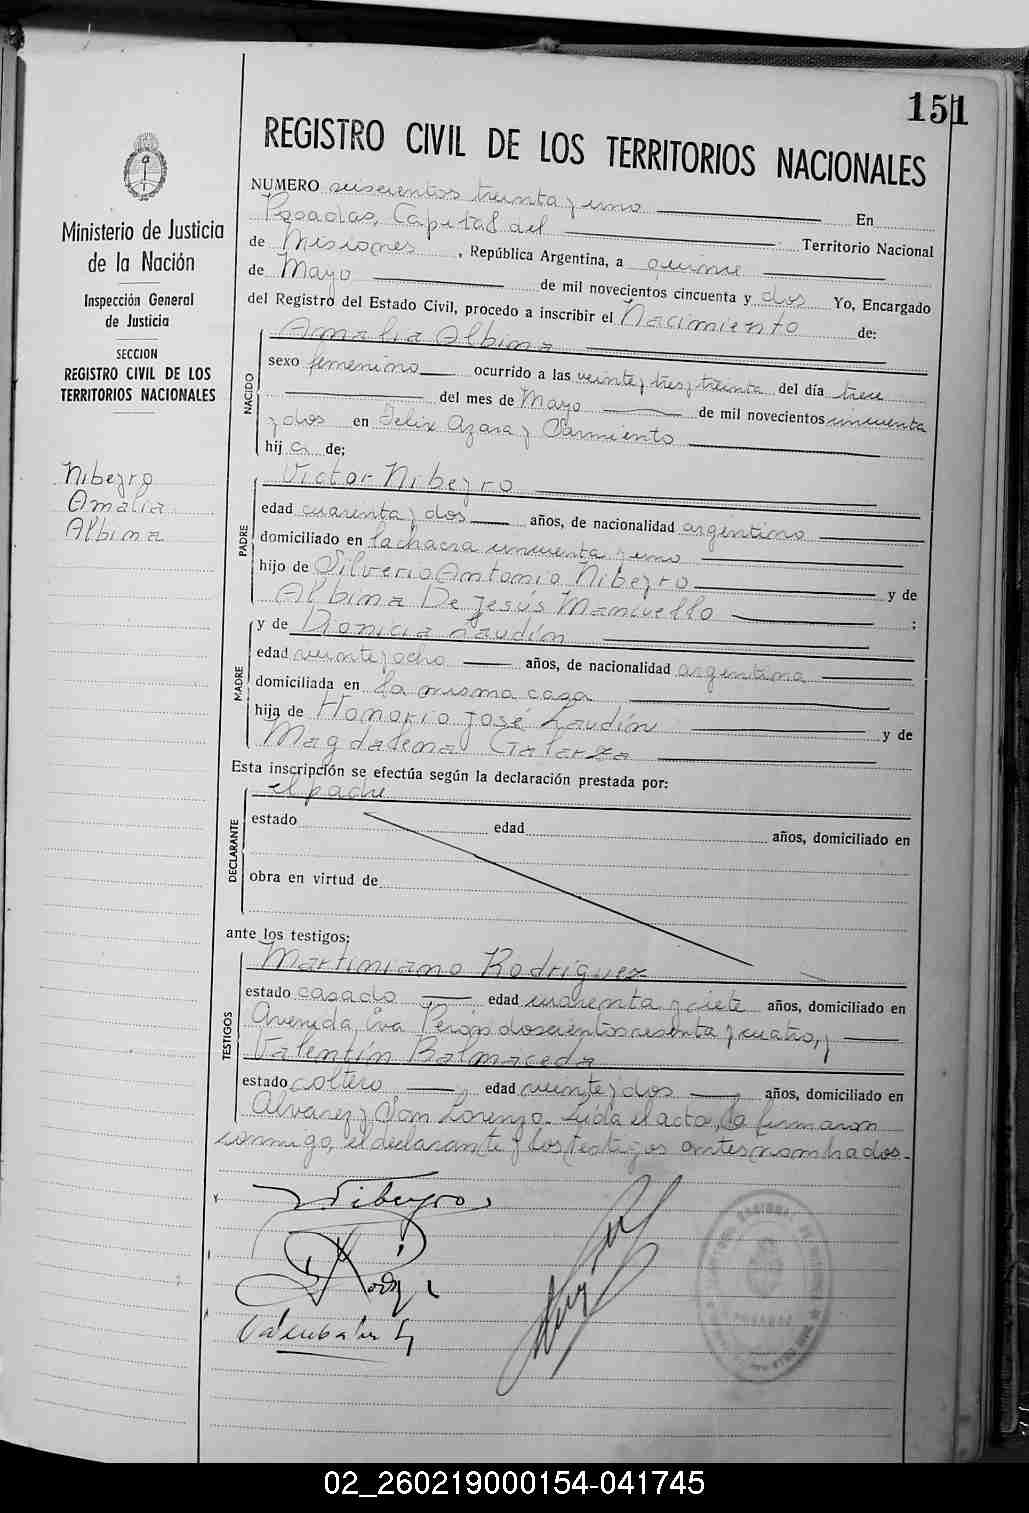 151
REGISTRO CIVIL DE LOS TERRITORIOS NACIONALES
Ministerio de Justicia
de la Nación
Inspección General
de Justicia
SECCION
REGISTRO CIVIL DE LOS
TERRITORIOS NACIONALES
Nibeyro
Amalia
Albina
NUMERO seiscientos treinta y uno En
Posadas, Capital del Territorio Nacional
de Misiones, República Argentina, a quince
de Mayo de mil novecientos cincuenta y dos Yo, Encargado
del Registro del Estado Civil, procedo a inscribir el Nacimiento de:
NACIDO
Amalia Albina
sexo femenino ocurrido a las veinte y tres y treinta del día trece
del mes de Mayo de mil novecientos cincuenta
y dos en Felix Azara y Sarmiento
hija de:
PADRE
Victor Nibeyro
edad cuarenta y dos años, de nacionalidad argentino
domiciliado en la chacra cincuenta y uno
hijo de Silverio Antonio Nibeyro y de
Albina De Jesús Mancuello ;
MADRE
y de Dionicia Laudín
edad veinte y ocho años, de nacionalidad argentina
domiciliada en la misma casa
hija de Honorio José Laudín y de
Magdalena Galarza
Esta inscripción se efectúa según la declaración prestada por:
DECLARANTE
el padre
estado edad años, domiciliado en
obra en virtud de
ante los testigos:
TESTIGOS
Martiniano Rodríguez
estado casado edad cuarenta y siete años, domiciliado en
Avenida Eva Perón doscientos sesenta y cuatro, y
Valentín Balmaceda
estado soltero, edad veinte y dos, años, domiciliado en
Alvarez y San Lorenzo. Leída el acta, la firmaron
conmigo, el declarante y los testigos antes nombrados.
Nibeyro
02_260219000154-041745